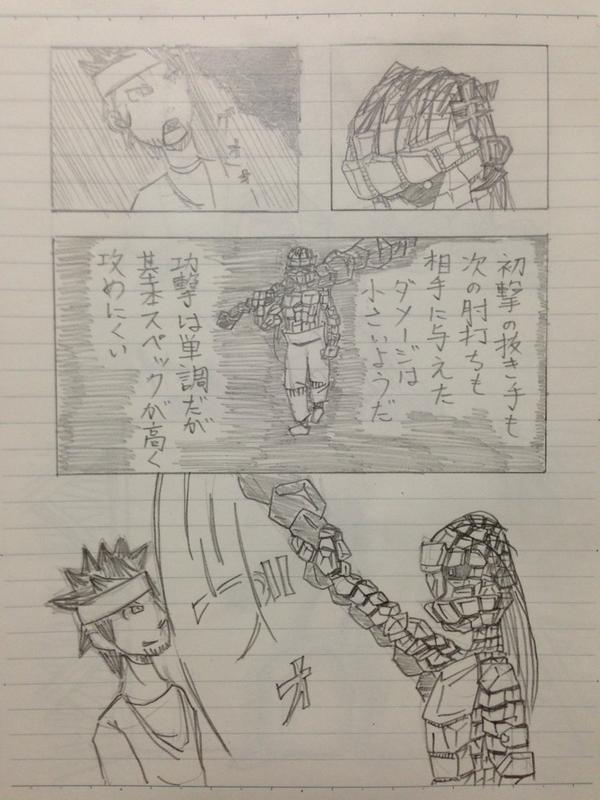 初撃の抜き手も
次の肘打ちも
相手に与えた
ダメージは
小さいようだ
攻撃は単調だが
基本スペックが高く
攻めにくい
オ